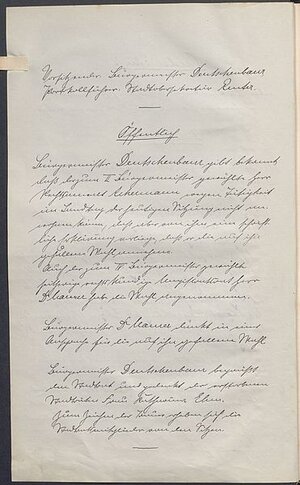 Vorsitzender Bürgermeister Deutschenbaur
Protokollführer Stadtobersekretär Reuter.
Öffentlich
Bürgermeister Deutschenbaur gibt bekannt
daß der zum II Bürgermeister gewählte Herr
Rechtsanwalt Ackermann wegen Tätigkeit
im Landtag der heutigen Sitzung nicht an-
wohnen kann, daß aber von ihm eine schrift-
liche Erklärung vorliege, daß er die auf ihn
gefallene Wahl annehme.
Auch der zum III Bürgermeister gewählte
seitherige rechtskundige Magistratsrat Herr
Dr Maurer habe die Wahl angenommen.
Bürgermeister Dr Maurer dankt in einer
Ansprache für die auf ihn gefallene Wahl
Bürgermeister Deutschenbaur begrüßt
den Stadtrat und gedenkt der verstorbenen
Stadträtin Frau
Zum Zeichen der Trauer erheben sich die
Stadtratsmitglieder von den Sitzen.